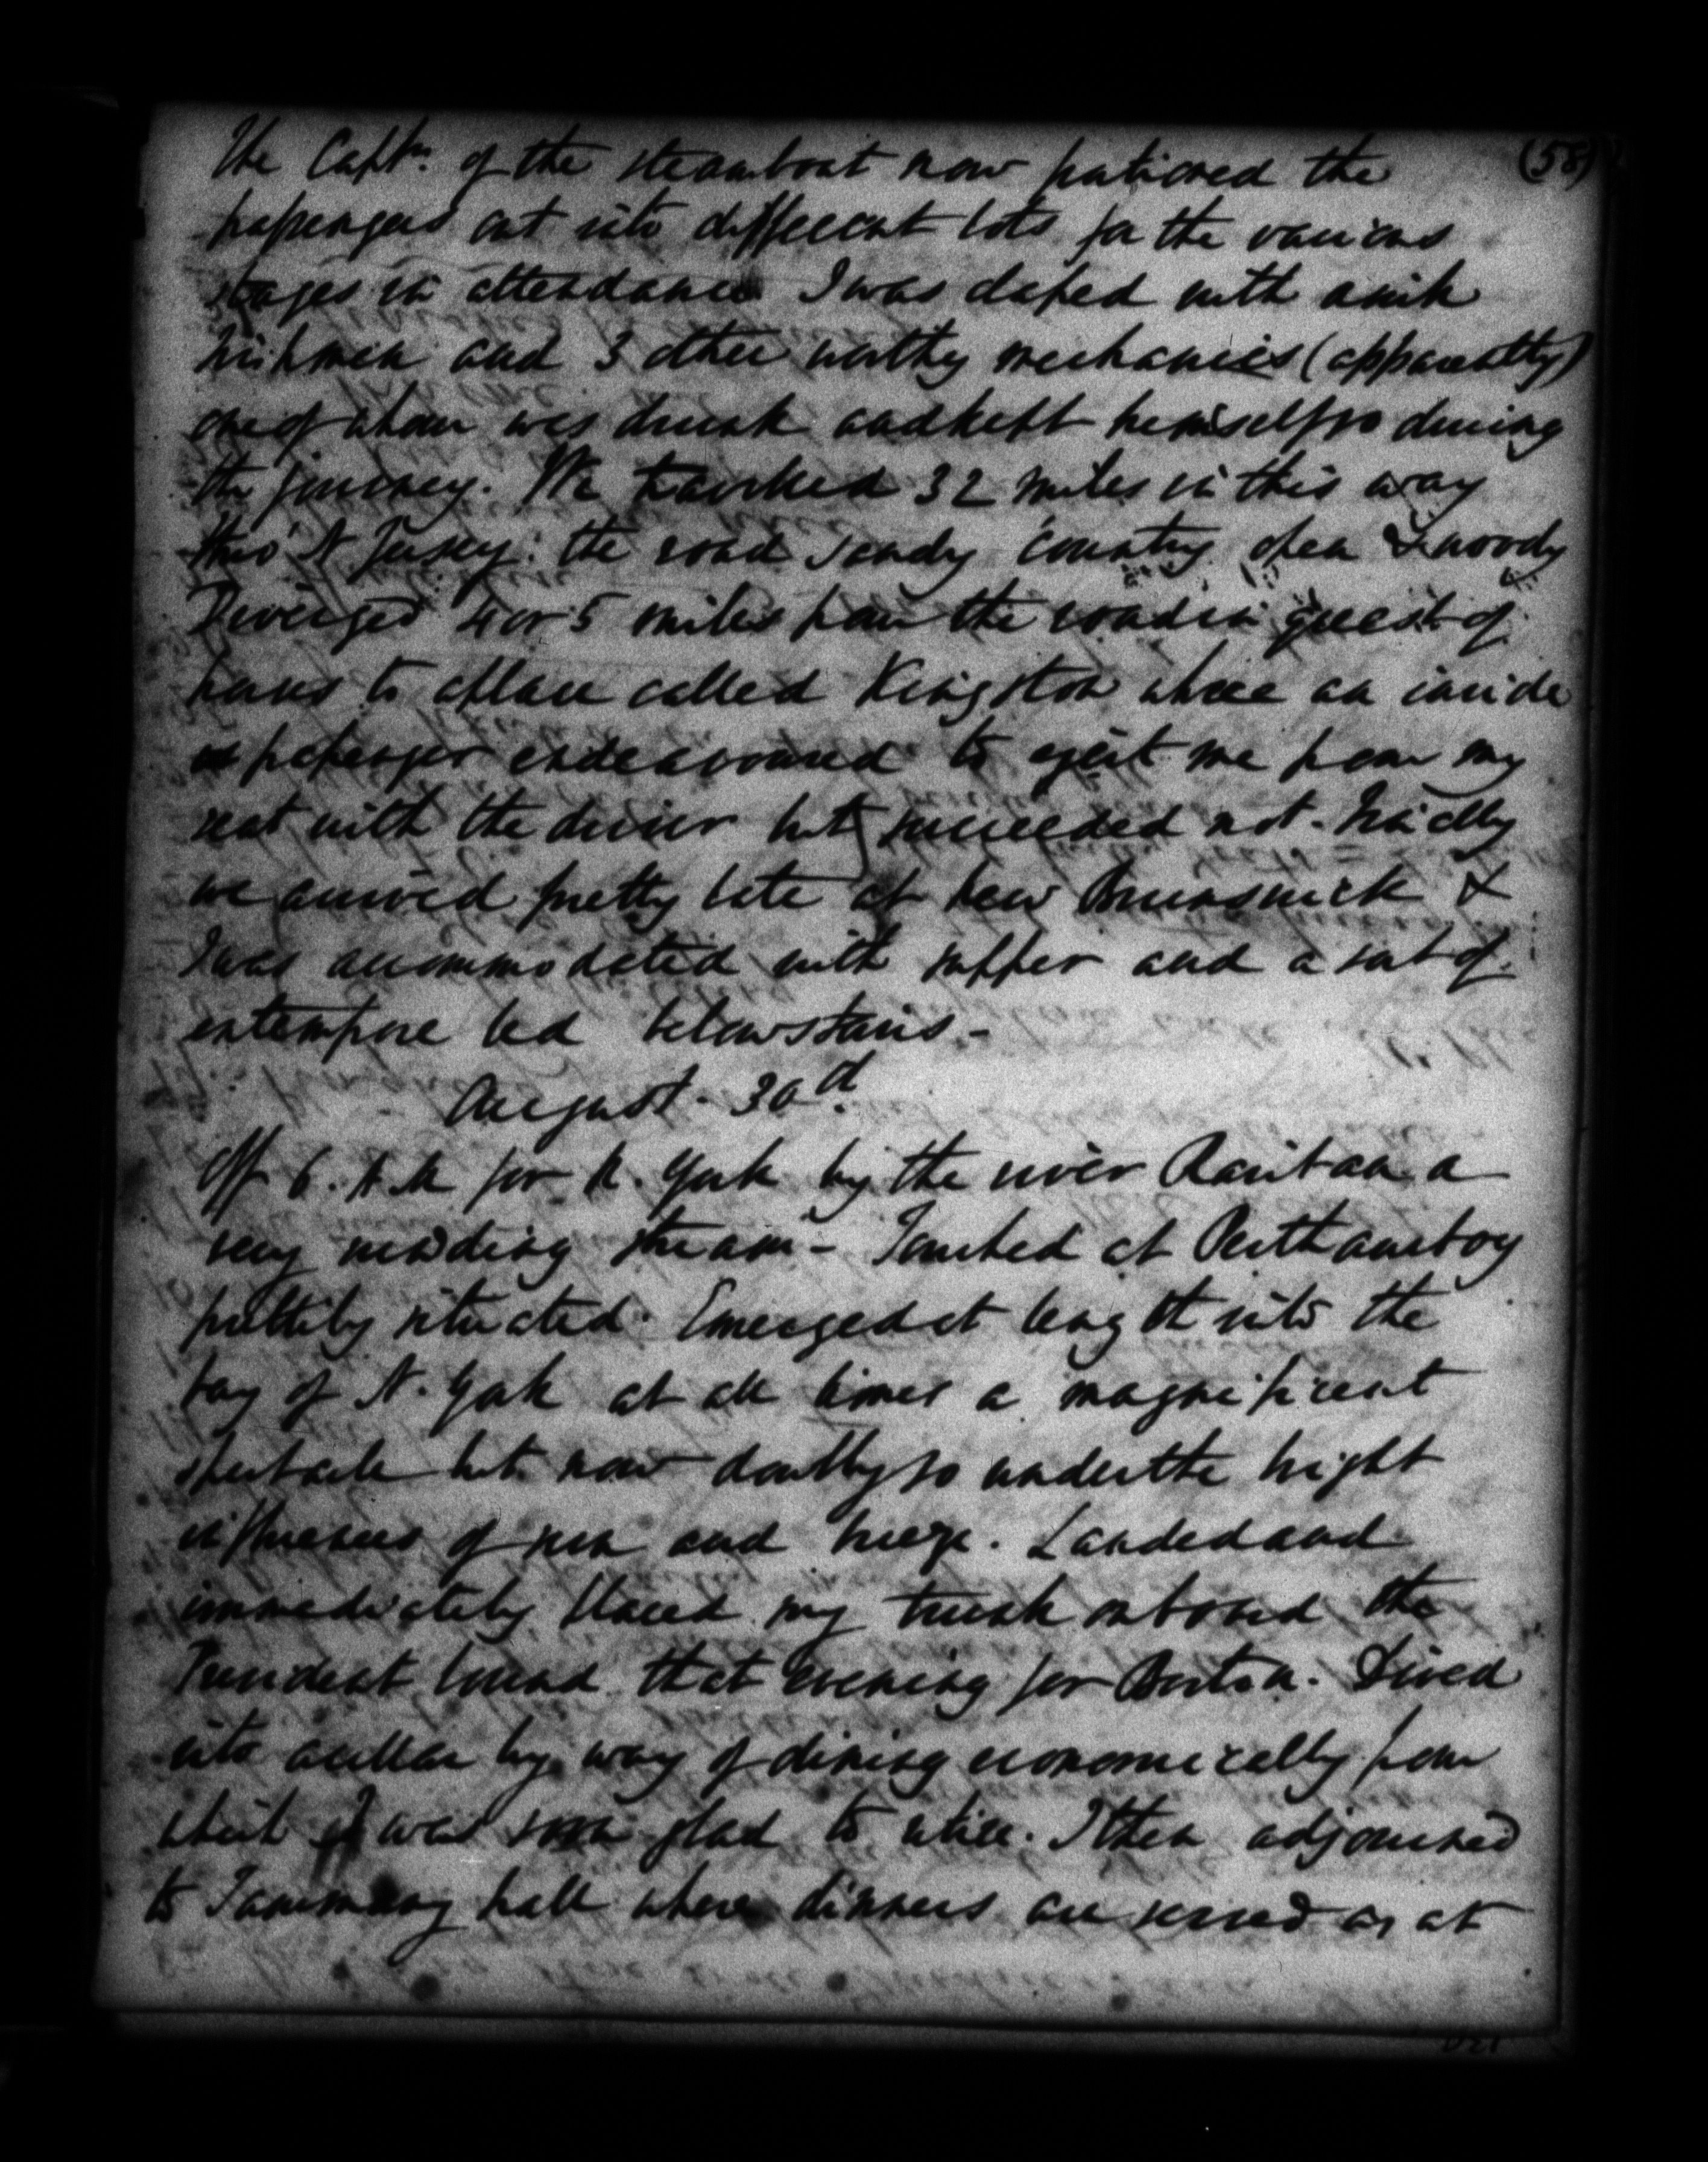 (58)
The Captn. of the steamboat now potioned the
passengers out into different lots for the various
stages in attendance I was classed with a sick
Irishmen and 3 other worthy mechanics (apparently)
one of whom was drunk and kept himself so during
the journey. We travelled 32 miles in this way
thro' N Jersey: the road sandy country open & woody
Diverged 4 or 5 miles from the road in quest of
horses to a place called Kingston where an inside
passenger endeavoured to eject me from my
seat with the driver but succeeded not.
we arrived pretty late at New Brunswick &
I was accommodated with supper and a sort of
extempore bed below stairs -
August 30d
Off 6. A.M for N. York by the river Raritan a
very winding stream - Touched at Perthamboy
prettily situated. Emerged at length into the
bay of N. York at all times a magnificent
spectacle but now doubly so under the bright
influences of sun and breeze. Landed and
immediately placed my trunk onboard the
President bound that evening for Boston. Dived
into a cellar by way of dining economically from
which I was soon glad to retire. I then adjourned
to Tammany hall where dinners are served as at